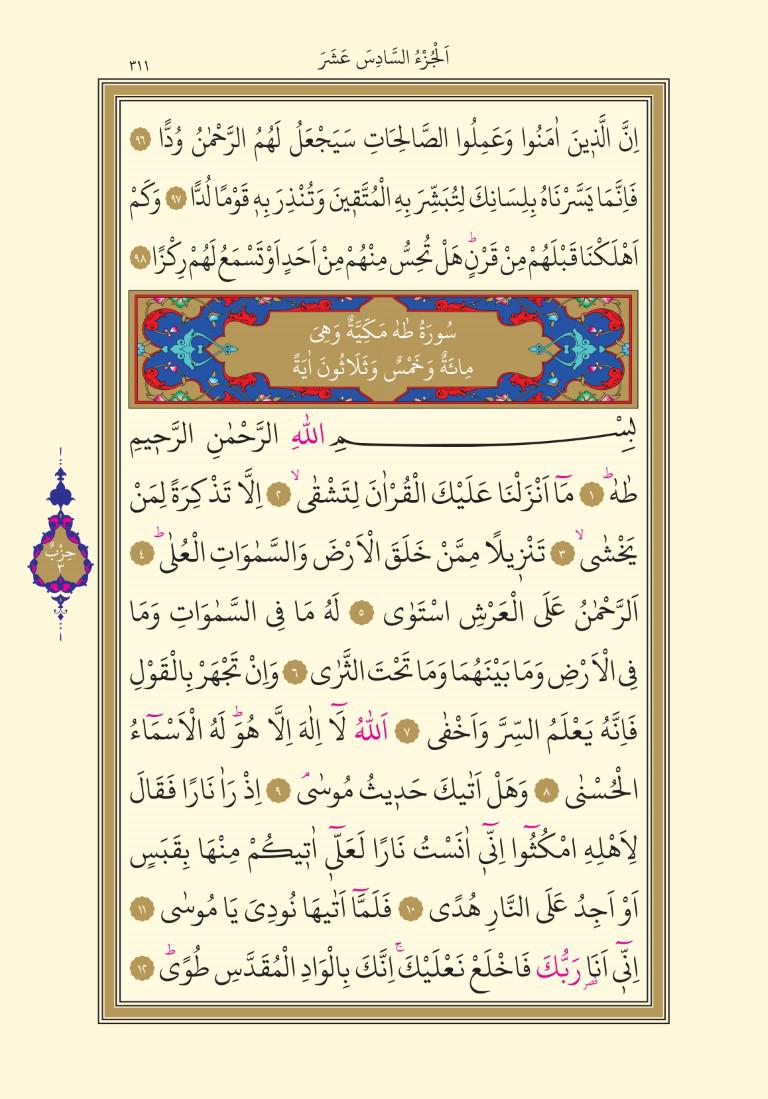 اَلْجُزْءُ السَّادِسَ عَشَرَ
٣١١
اِنَّ الَّذ۪ينَ اٰمَنُوا وَعَمِلُوا الصَّالِحَاتِ سَيَجْعَلُ لَهُمُ الرَّحْمٰنُ وُدًّا ٩٦
فَاِنَّمَا يَسَّرْنَاهُ بِلِسَانِكَ لِتُبَشِّرَ بِهِ الْمُتَّق۪ينَ وَتُنْذِرَ بِه۪ قَوْمًا لُدًّا ٩٧ وَكَمْ
اَهْلَكْنَا قَبْلَهُمْ مِنْ قَرْنٍۜ هَلْ تُحِسُّ مِنْهُمْ مِنْ اَحَدٍ اَوْ تَسْمَعُ لَهُمْ رِكْزًا ٩٨
سُورَةُ طٰهٰ مَكِّيَّةٌ وَهِىَ
مِائَةٌ وَخَمْسٌ وَثَلَاثُونَ اٰيَةً
بِسْمِ اللّٰهِ الرَّحْمٰنِ الرَّح۪يمِ
طٰهٰۜ ١ مَٓا اَنْزَلْنَا عَلَيْكَ الْقُرْاٰنَ لِتَشْقٰىۙ ٢ اِلَّا تَذْكِرَةً لِمَنْ
يَخْشٰىۙ ٣ تَنْز۪يلًا مِمَّنْ خَلَقَ الْاَرْضَ وَالسَّمٰوَاتِ الْعُلٰىۜ ٤
اَلرَّحْمٰنُ عَلَى الْعَرْشِ اسْتَوٰى ٥ لَهُ مَا فِى السَّمٰوَاتِ وَمَا
فِى الْاَرْضِ وَمَا بَيْنَهُمَا وَمَا تَحْتَ الثَّرٰى ٦ وَاِنْ تَجْهَرْ بِالْقَوْلِ
فَاِنَّهُ يَعْلَمُ السِّرَّ وَاَخْفٰى ٧ اَللّٰهُ لَٓا اِلٰهَ اِلَّا هُوَۜ لَهُ الْاَسْمَٓاءُ
الْحُسْنٰى ٨ وَهَلْ اَتٰيكَ حَد۪يثُ مُوسٰىۢ ٩ اِذْ رَاٰ نَارًا فَقَالَ
لِاَهْلِهِ امْكُثُٓوا اِنّ۪ٓى اٰنَسْتُ نَارًا لَعَلّ۪ٓى اٰت۪يكُمْ مِنْهَا بِقَبَسٍ
اَوْ اَجِدُ عَلَى النَّارِ هُدًى ١٠ فَلَمَّٓا اَتٰيهَا نُودِىَ يَا مُوسٰى ١١
اِنّ۪ٓى اَنَا۬ رَبُّكَ فَاخْلَعْ نَعْلَيْكَۚ اِنَّكَ بِالْوَادِ الْمُقَدَّسِ طُوًىۜ ١٢
قصر
حِزْبٌ
٣